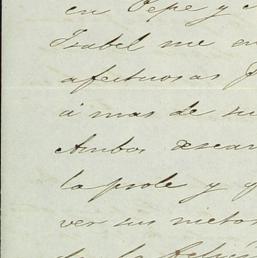 en Pepe y
Isabel me en
afectuosas
á mas de su
Ambos desean
la prole y q
ver sus nietos
de la